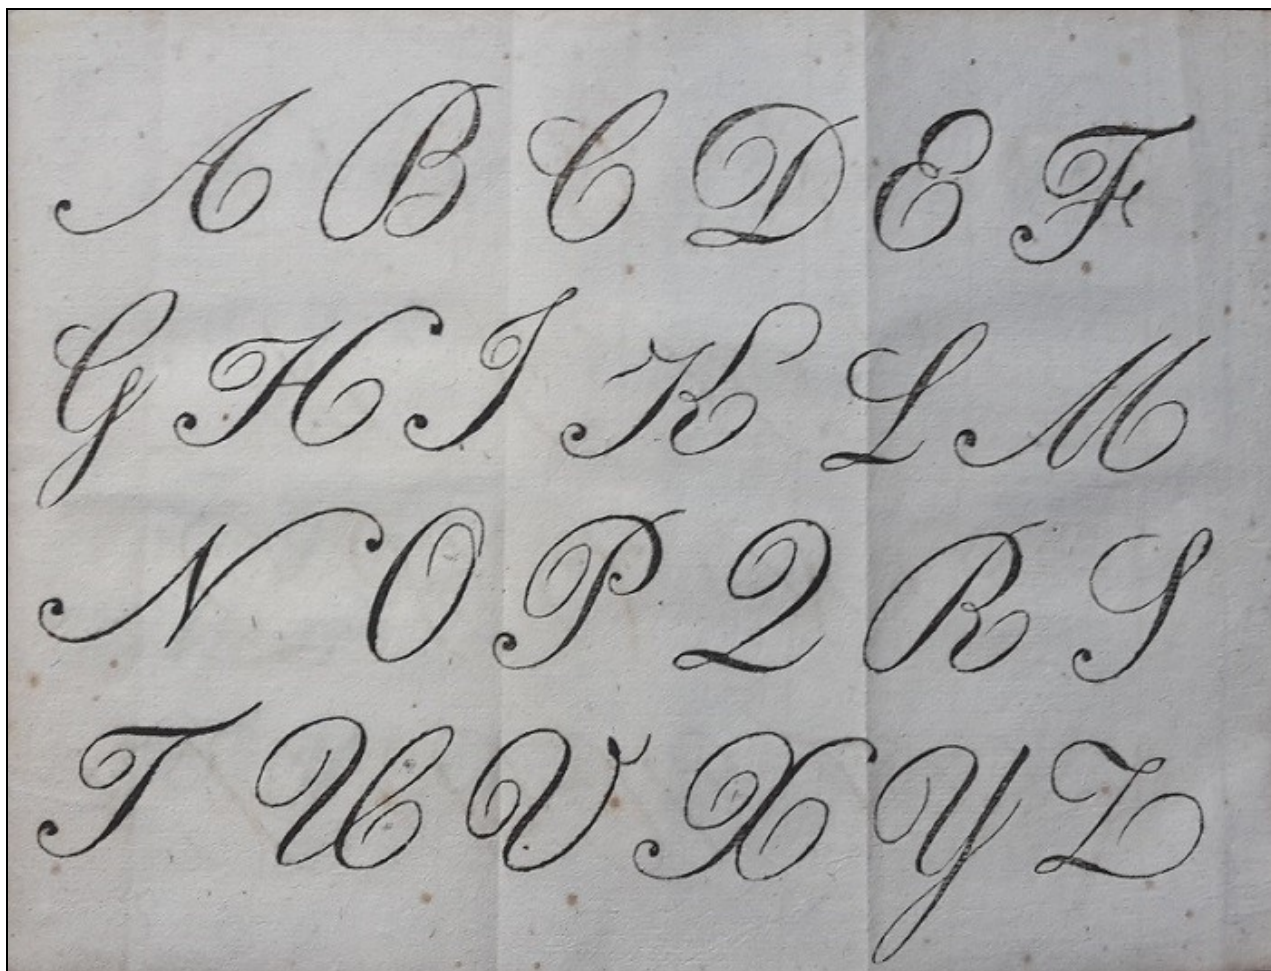 A B C D E F
G H I K L M
N O P Q R S
T U V X Y Z